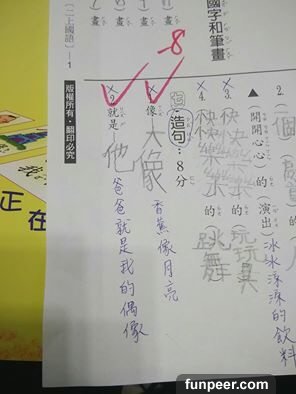 國字和筆畫
畫
畫
2.
個
▲(開開心心)的(演出)
冰冰涼涼的飲料
3.
快快樂樂的玩玩具
4.
快快樂樂的跳舞
造句:8分
-8
1.像
大像
香蕉像月亮
2.就是
他
爸爸就是我的偶像
(二上國語)-1
版權所有‧翻印必究
正在
funpeer.com